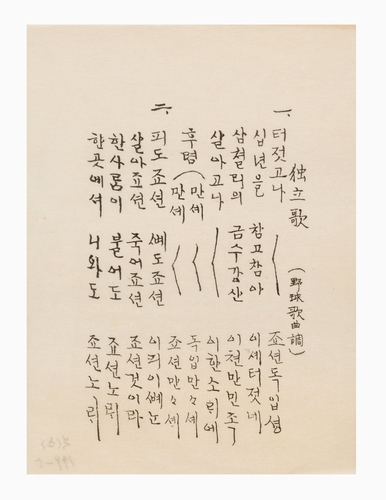 独立歌 (野球歌曲調)
一、터젓고나 죠션독입셩
십년을 참고참아 이셰터젓네
삼쳘리의 금수강산 이쳔만민죡
살아고나 이한소리에
후렴(만셰 독입만々셰
만셰 죠션만々셰
二、피도죠션 뼈도죠션 이피이뼈는
살아죠션 죽어죠션 죠션것이라
한사룸이 불어도 죠션노릭
한곳에셔 나와도 죠션노릭